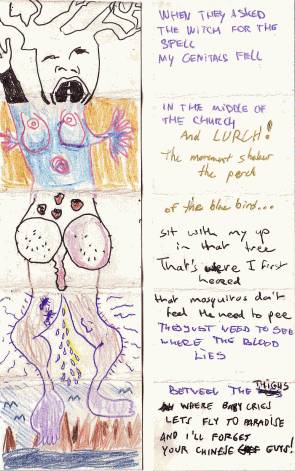 WHEN THEY ASKED
THE WITCH FOR THE
SPELL
MY GENITALS FELL
IN THE MIDDLE OF
THE CHURCH
And LURCH!
The movement shakes
the perch
of the blue bird...
sit with my up
in that tree
That's where I first
heared
that mosquitos don't
feel the need to pee
THEY JUST NEED TO SEE
WHERE THE BLOOD
LIES
BETWEEN THE THIGHS
WHERE BABY CRIES
LETS FLY TO PARADISE
AND I'LL FORGET
YOUR CHINESE GUTS!